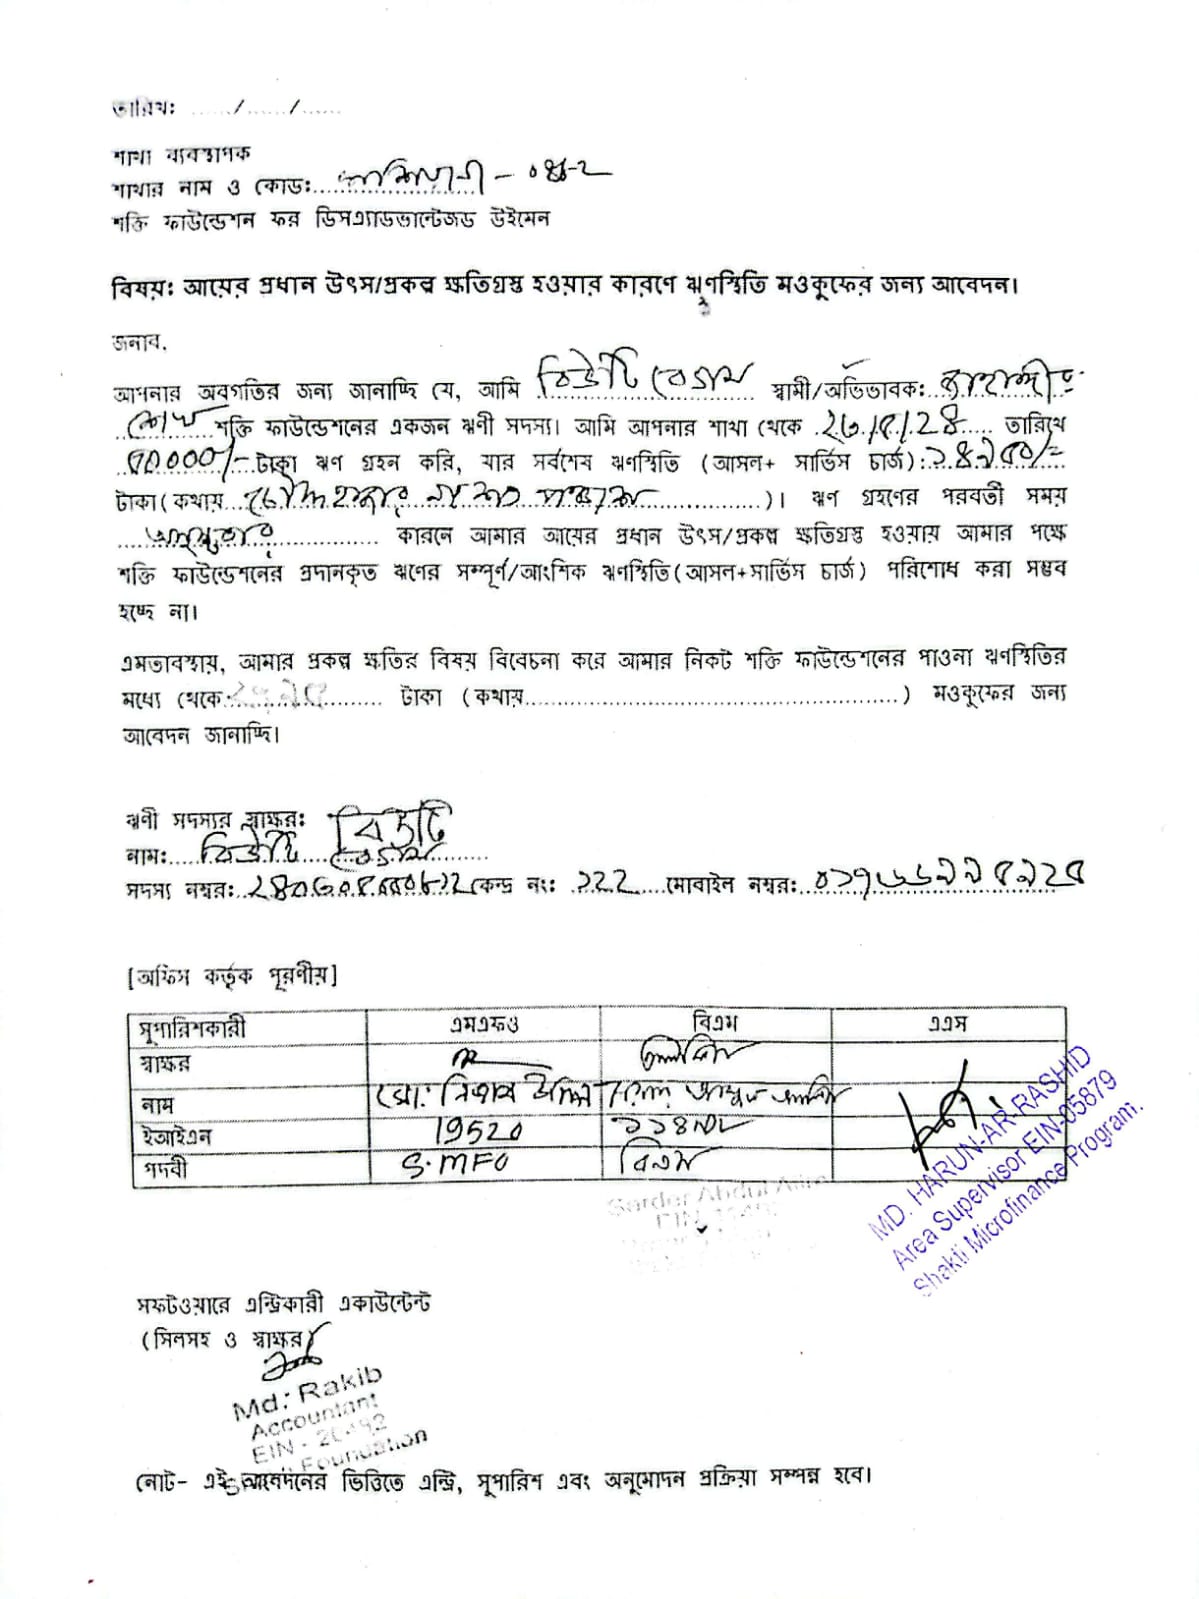 তারিখ: ....../....../......
শাখা ব্যবস্থাপক
শাখার নাম ও কোড:
শক্তি ফাউন্ডেশন ফর ডিসএ্যাডভান্টেজড উইমেন
বিষয়: আয়ের প্রধান উৎস/প্রকল্প ক্ষতিগ্রস্ত হওয়ার কারণে ঋণস্থিতি মওকুফের জন্য আবেদন।
জনাব,
আপনার অবগতির জন্য জানাচ্ছি যে, আমি বিউটি বেগম স্বামী/অভিভাবক: জাহাঙ্গীর
শেখ শক্তি ফাউন্ডেশনের একজন ঋণী সদস্য। আমি আপনার শাখা থেকে তারিখে
টাকা ঋণ গ্রহন করি, যার সর্বশেষ ঋণস্থিতি (আসল+ সার্ভিস চার্জ): ১৪৯৫০/=
টাকা (কথায় চৌদ্দ হাজার নয়শত পঞ্চাশ)। ঋণ গ্রহণের পরবর্তী সময়
অসুস্থতার কারনে আমার আয়ের প্রধান উৎস/প্রকল্প ক্ষতিগ্রস্ত হওয়ায় আমার পক্ষে
শক্তি ফাউন্ডেশনের প্রদানকৃত ঋণের সম্পূর্ণ/আংশিক ঋণস্থিতি(আসল+সার্ভিস চার্জ) পরিশোধ করা সম্ভব
হচ্ছে না।
এমতাবস্থায়, আমার প্রকল্প ক্ষতির বিষয় বিবেচনা করে আমার নিকট শক্তি ফাউন্ডেশনের পাওনা ঋণস্থিতির
মধ্যে থেকে টাকা (কথায়) মওকুফের জন্য
আবেদন জানাচ্ছি।
ঋণী সদস্যর স্বাক্ষর: বিউটি
নাম: বিউটি বেগম
সদস্য নম্বর: কেন্দ্র নং: ১২২ মোবাইল নম্বর:
[অফিস কর্তৃক পূরণীয়]
সুপারিশকারী এমএফও বিএম এএস
স্বাক্ষর
নাম মো:
ইআইএন 19520
পদবী S.MFO বিএম
MD. HARUN-AR-RASHID
Area Supervisor EIN-05879
Shakti Microfinance Program.
Sardar Abdul
EIN
সফটওয়ারে এন্ট্রিকারী একাউন্টেন্ট
(সিলসহ ও স্বাক্ষর)
Md: Rakib
Accountant
EIN -
Foundation
নোট- এই আবেদনের ভিত্তিতে এন্ট্রি, সুপারিশ এবং অনুমোদন প্রক্রিয়া সম্পন্ন হবে।